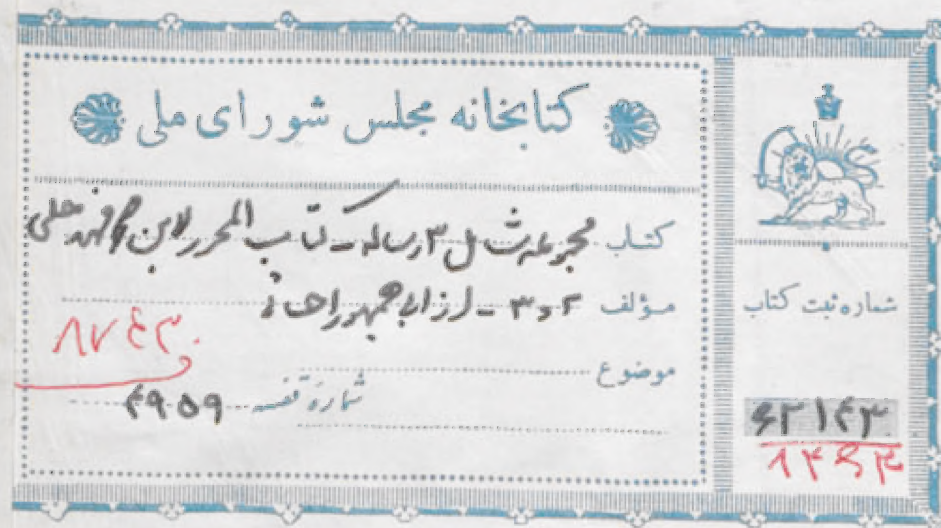 کتابخانه مجلس شورای ملی
کتاب مجموعه شامل ۳ رساله - کتاب المحرر لابن فهد حلی
مؤلف ۲ و ۳ - از ابی جمهور احسائی
موضوع
شماره قفسه ۴۹۵۹
شماره ثبت کتاب
۶۲۱۴۳